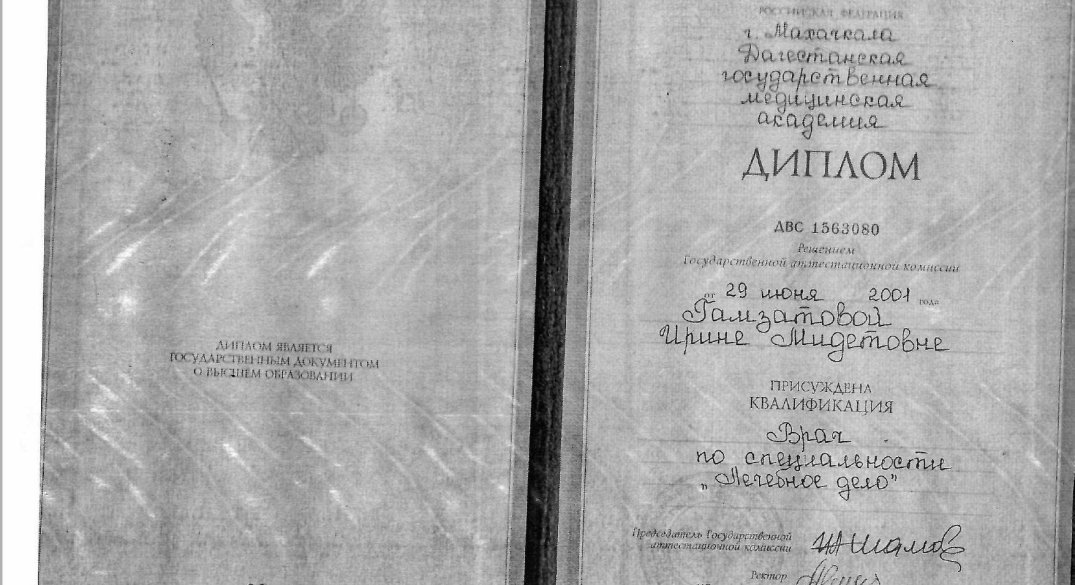 ДИПЛОМ ЯВЛЯЕТСЯ
ГОСУДАРСТВЕННЫМ ДОКУМЕНТОМ
О ВЫСШЕМ ОБРАЗОВАНИИ
РОССИЙСКАЯ ФЕДЕРАЦИЯ
г. Махачкала
Дагестанская
государственная
медицинская
академия
ДИПЛОМ
ДВС 1563080
Решением
Государственной аттестационной комиссии
от 29 июня 2001 года
Гамзатовой
Ирине Мидетовне
ПРИСУЖДЕНА
КВАЛИФИКАЦИЯ
Врач
по специальности
„Лечебное дело"
Председатель Государственной
аттестационной комиссии
Ректор